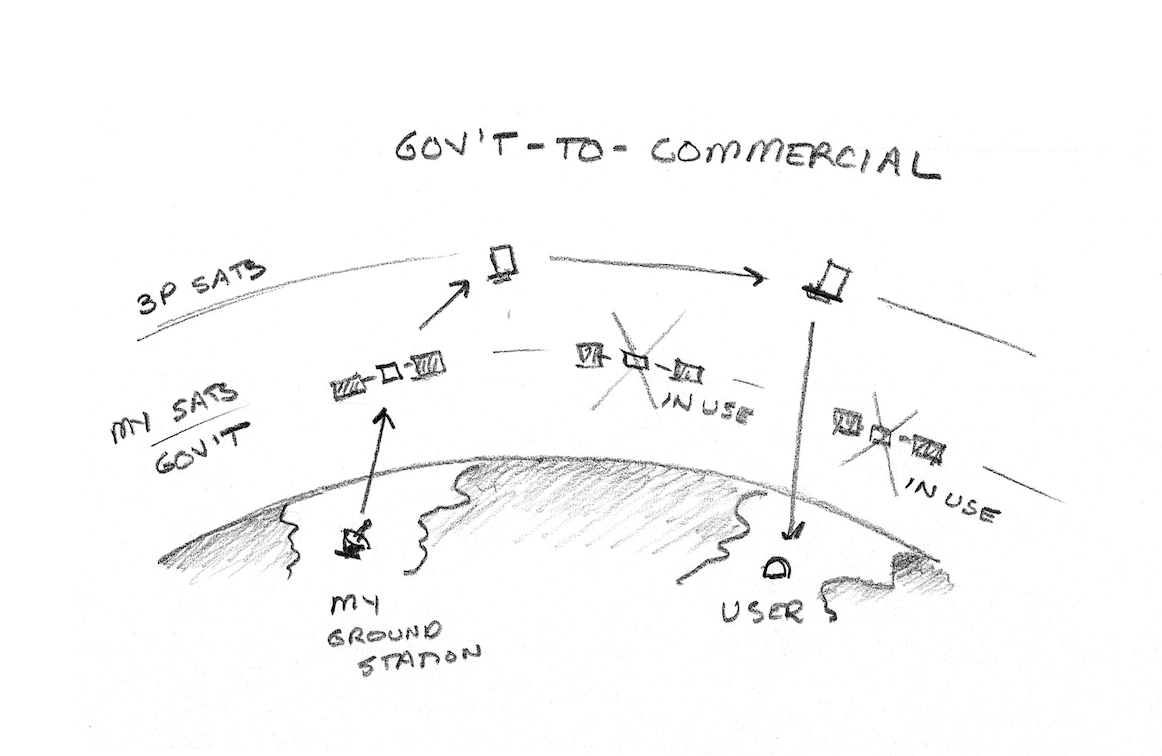 GOV'T-TO-COMMERCIAL
3P SATS
MY SATS
GOV'T
IN USE
IN USE
MY
GROUND
STATION
USER